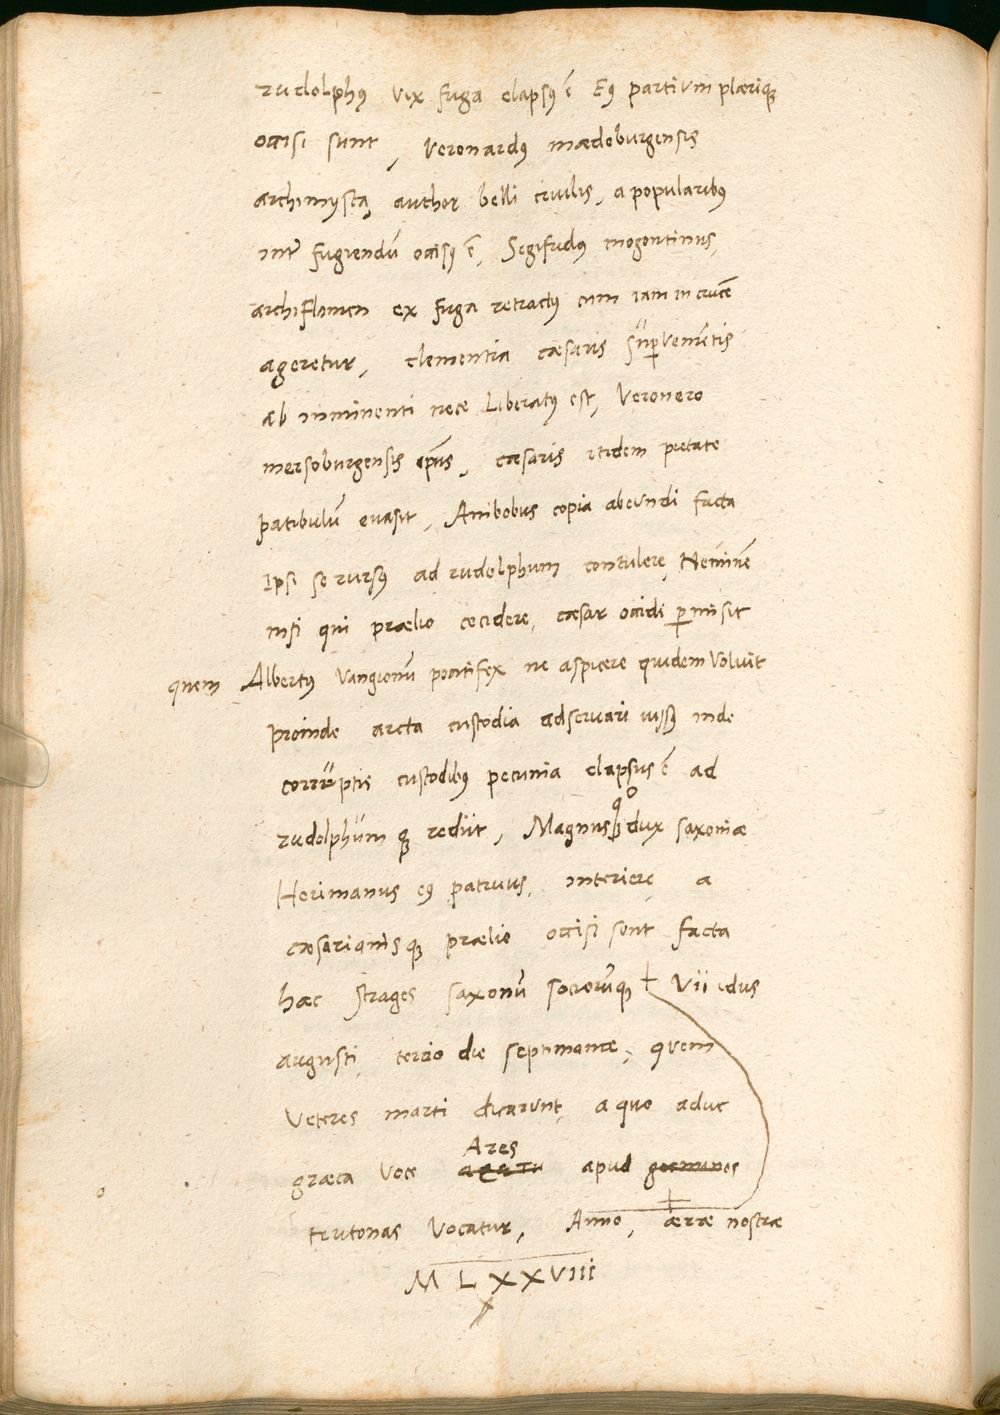 rudolphus vix fuga elapsus ē Eius partium plærique
occisi sunt, Veronardus mædoburgensis
archimysta, author belli civilis, a popularibus
inter fugiendū occisus ē, Segifridus mogontinus,
archiflamen ex fuga retractus cum iam in crucē
ageretur, clementia cæsaris supervenientis
ab imminenti nece Liberatus est, Veronero
mersoburgensis epūs, cæsaris itidem pietate
patibulū evasit, Ambobus copia abeundi facta
Ipsi se rursus ad rudolphum contulere, Neminē
nisi qui prælio cecidere, cæsar occidi permisit
quem Albertus vangionū pontifex ne aspicere quidem voluit
proinde arcta custodia adservari iussit inde
corruptis custodibus pecunia elapsus ē ad
rudolphum que rediit, Magnus quoque dux saxoniæ
Herimanus eius patruus, interiere, a
cæsarianis que prælio occisi sunt facta
hæc strages saxonū sociorūque † Vii idus
augusti, tercio die septimanæ, quem
veteres marti dicarunt, a quo aduc
Ares
græca voce apud
teutonas vocatur, Anno, † æræ nostræ
M L X X V I I I